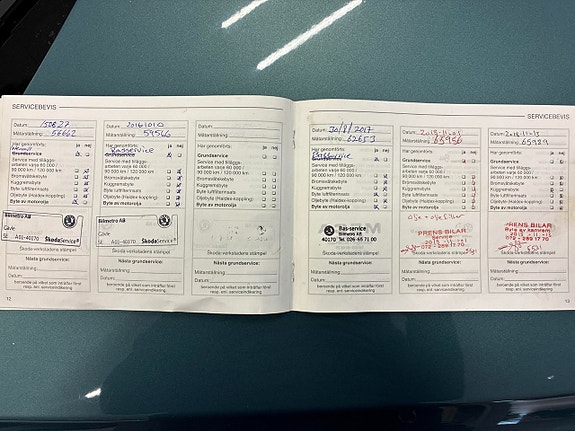 SERVICEBEVIS
Datum: 150827
Mätarställning: 56662
Har genomförts: ja nej
Grundservice
Service med tilläggs-
arbeten varje 60 000 /
90 000 km / 120 000 km
Bromsvätskebyte
Kuggremsbyte
Byte luftfilterinsats
Oljebyte (Haldex-koppling)
Byte av motorolja
Bilmetro AB
Gävle
SE A01-40170 ŠkodaService
Skoda-verkstadens stämpel
Nästa grundservice:
Mätarställning:
Datum:
beroende på vilket som inträffar först
resp. enl. serviceindikering
12
Datum: 20161010
Mätarställning: 59566
Har genomförts: ja nej
Basservice
Grundservice
Service med tilläggs-
arbeten varje 60 000 /
90 000 km / 120 000 km
Bromsvätskebyte
Kuggremsbyte
Byte luftfilterinsats
Oljebyte (Haldex-koppling)
Byte av motorolja
Bilmetro AB
Gävle
SE A01-40170 ŠkodaService
Skoda-verkstadens stämpel
Nästa grundservice:
Mätarställning:
Datum:
beroende på vilket som inträffar först
resp. enl. serviceindikering
Datum:
Mätarställning:
Har genomförts: ja nej
Grundservice
Service med tilläggs-
arbeten varje 60 000 /
90 000 km / 120 000 km
Bromsvätskebyte
Kuggremsbyte
Byte luftfilterinsats
Oljebyte (Haldex-koppling)
Byte av motorolja
Skoda-verkstadens stämpel
Nästa grundservice:
Mätarställning:
Datum:
beroende på vilket som inträffar först
resp. enl. serviceindikering
SERVICEBEVIS
Datum: 30/8/2017
Mätarställning: 62653
Har genomförts: ja nej
Grundservice
Service med tilläggs-
arbeten varje 60 000 /
90 000 km / 120 000 km
Bromsvätskebyte
Kuggremsbyte
Byte luftfilterinsats
Oljebyte (Haldex-koppling)
Byte av motorolja
Bas-service
Bilmetro AB
40170 Tel. 026-45 71 00
Skoda-verkstadens stämpel
Nästa grundservice:
Mätarställning:
Datum:
beroende på vilket som inträffar först
resp. enl. serviceindikering
Datum:
Mätarställning: 65956
Har genomförts: ja nej
Grundservice
Service med tilläggs-
arbeten varje 60 000 /
90 000 km / 120 000 km
Bromsvätskebyte
Kuggremsbyte
Byte luftfilterinsats
Oljebyte (Haldex-koppling)
Byte av motorolja
olje + oljefilter
PRENS BILAR
Skoda-verkstadens stämpel
Nästa grundservice:
Mätarställning:
Datum:
beroende på vilket som inträffar först
resp. enl. serviceindikering
Datum:
Mätarställning:
Har genomförts: ja nej
Grundservice
Service med tilläggs-
arbeten varje 60 000 /
90 000 km / 120 000 km
Bromsvätskebyte
Kuggremsbyte
Byte luftfilterinsats
Oljebyte (Haldex-koppling)
Byte av motorolja
PRENS BILAR
Byte av kamrem
Skoda-verkstadens stämpel
Nästa grundservice:
Mätarställning:
Datum:
beroende på vilket som inträffar först
resp. enl. serviceindikering
13